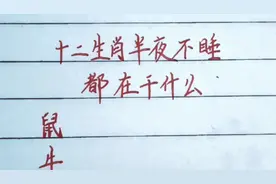 十二生肖半夜不睡
都在干什么
鼠
牛